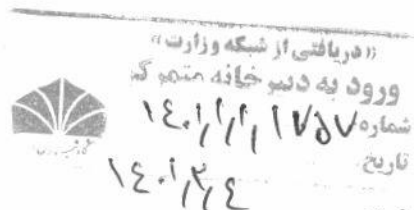 «دریافتی از شبکه وزارت»
ورود به دبیرخانه متمرکز
شماره ۱۴۰۱/۱/۱/۱۷۵۷
تاریخ ۱۴۰۱/۳/۴